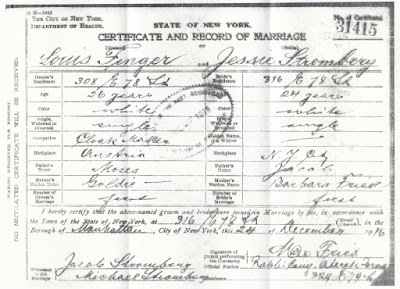 THE CITY OF NEW YORK.
DEPARTMENT OF HEALTH.
STATE OF NEW YORK.
No. of Certificate
31415
CERTIFICATE AND RECORD OF MARRIAGE
OF
(Groom) (Bride)
Louis Finger and Jessie Stromberg
Groom's Residence 308 E 78 St Bride's Residence 316 E 78 St
Age 26 years Age 24 years
Color white Color white
Single, Widowed or Divorced single Single, Widowed or Divorced single
Occupation Cloak Maker Maiden Name, if a Widow
Birthplace Austria Birthplace N.Y. City
Father's Name Moses Father's Name Jacob
Mother's Maiden Name Goldie Mother's Maiden Name Barbara Fries
Number of Groom's Marriage first Number of Bride's Marriage first
I hereby certify that the above-named groom and bride were joined in Marriage by me, in accordance
with the Laws of the State of New York, at 316 E 78 St (Street), in the
Borough of Manhattan, City of New York, this 24 of December 1916
Signature of person performing the Ceremony Max Fries
Official Station Rabbi
329 E 79 St
Witnesses to the Marriage Jacob Stromberg
Michael Stromberg
NO MUTILATED CERTIFICATE WILL BE RECEIVED.
MARGIN RESERVED FOR BINDING.